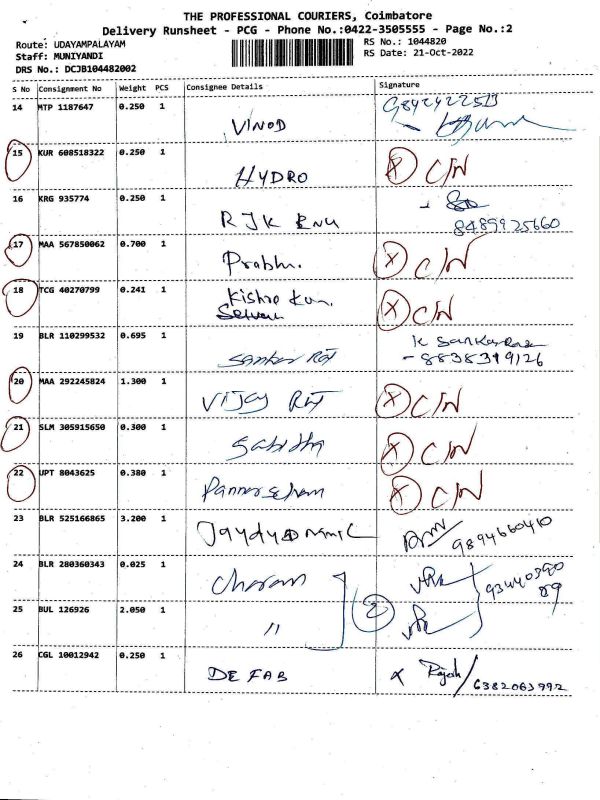 THE PROFESSIONAL COURIERS, Coimbatore
Delivery Runsheet - PCG - Phone No.:0422-3505555 - Page No.:2
Route: UDAYAMPALAYAM RS No.: 1044820
Staff: MUNIYANDI RS Date: 21-Oct-2022
DRS No.: DCJB104482002
S No Consignment No Weight PCS Consignee Details Signature
14 MTP 1187647 0.250 1 VINOD 9842422513
15 KUR 608518322 0.250 1 HYDRO X C/N
16 KRG 935774 0.250 1 RJK ENU
8489925660
17 MAA 567850062 0.700 1 Prabhu. X C/N
18 TCG 40270799 0.241 1 Kishro Kum. X C/N
Selvam
19 BLR 110299532 0.695 1 Sankar Raj K Sankar Raj
- 8838319126
20 MAA 292245824 1.300 1 VIJAY RAJ X C/N
21 SLM 305915650 0.300 1 Sabitha X C/N
22 UPT 8043625 0.380 1 Pannerselvam X C/N
23 BLR 525166865 3.200 1 Jaydydnamic 9894660410
24 BLR 280360343 0.025 1 Charan 9344039089
25 BUL 126926 2.050 1 11 2
26 CGL 10012942 0.250 1 DE FAB X Rajesh/6382063992